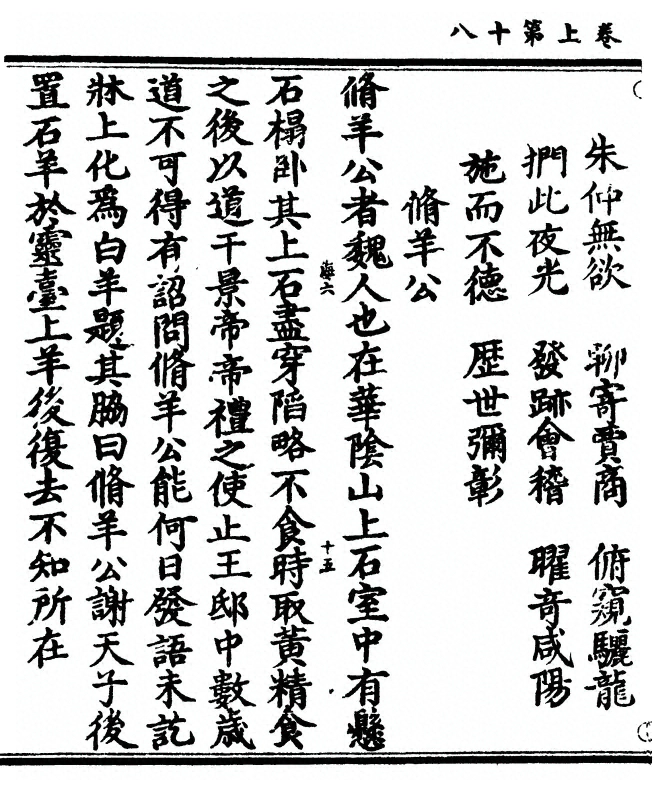 卷上第十八
朱仲無欲 聊寄賈商 俯窺驪龍
捫此夜光 發跡會稽 曜奇咸陽
施而不德 歷世彌彰
脩羊公
脩羊公者魏人也在華陰山上石室中有懸
石榻卧其上石盡穿陷略不食時取黃精食
海六
十五
之後以道干景帝帝禮之使止王邸中數歲
道不可得有詔問脩羊公能何日發語未訖
牀上化爲白羊題其脇曰脩羊公謝天子後
置石羊於靈臺上羊後復去不知所在